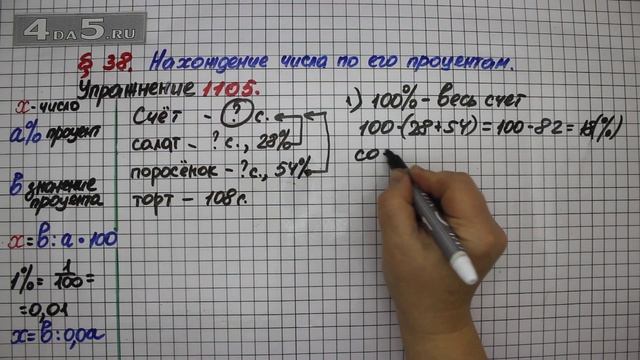 4DA5.RU
§ 38. Нахождение числа по его процентам.
Упражнение 1105.
x - число
a% процент
b значение
процента
x = b : a • 100
1% = 1/100 =
= 0,01
x = b : 0,0a
Счёт - ? с.
салат - ? с., 28%
поросёнок - ? с., 54%
торт - 108 г.
1) 100% - весь счет
100 - (28 + 54) = 100 - 82 = 18(%)
со